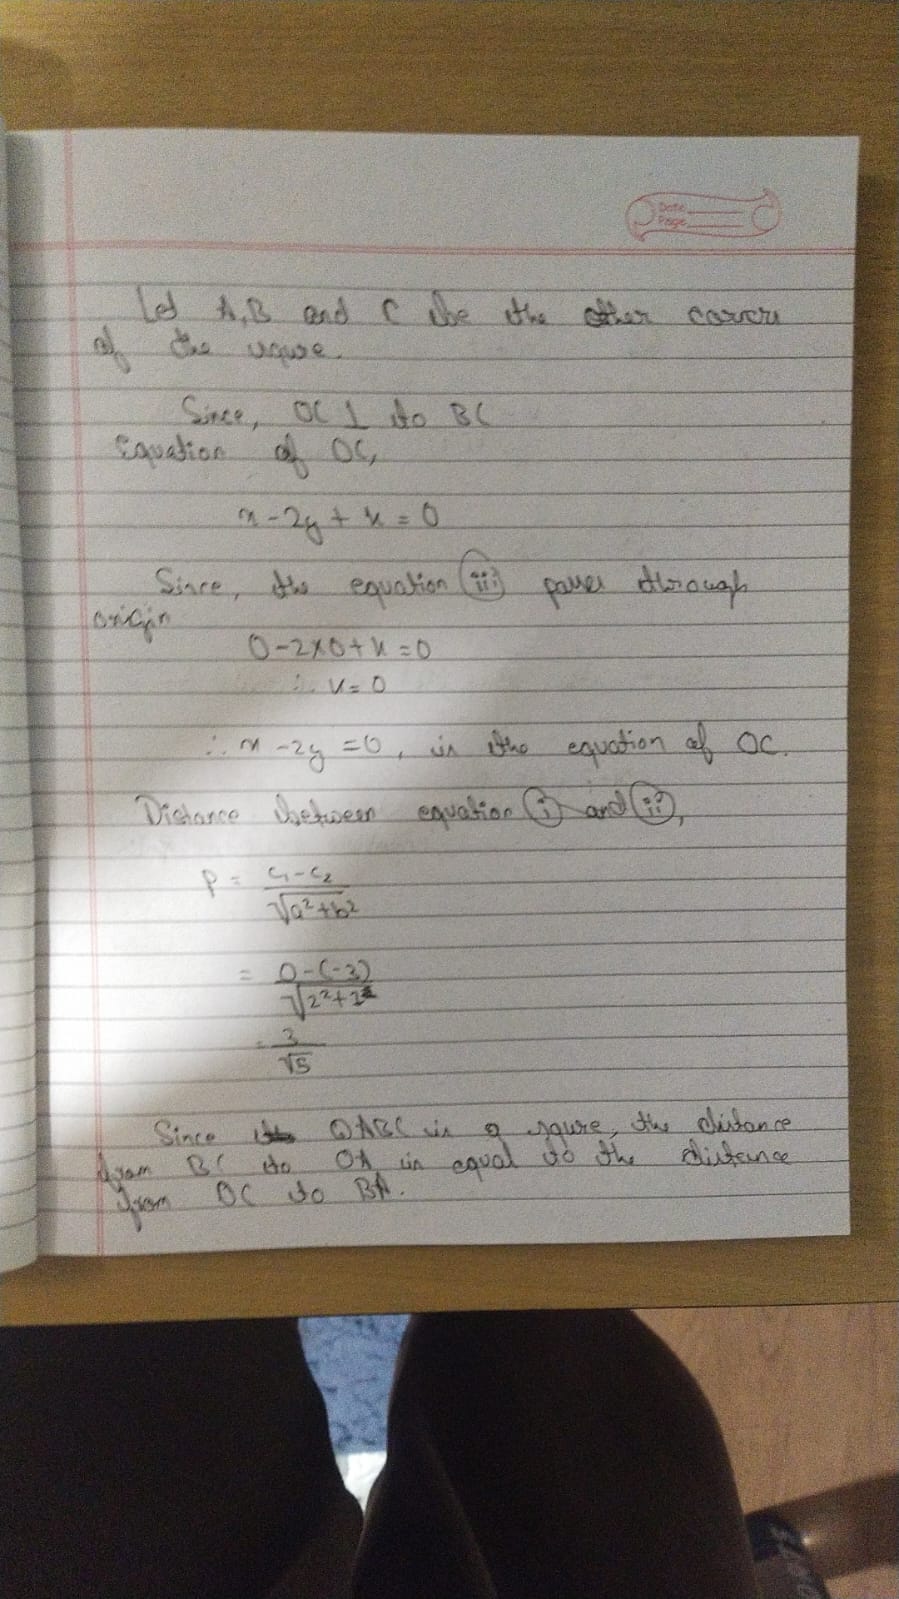 Date
Page
Let A, B and C be the other corners
of the square.
Since, OC ⊥ to BC
Equation of OC,
x - 2y + k = 0
Since, the equation (iii) passes through
origin
0 - 2×0 + k = 0
∴ k = 0
∴ x - 2y = 0, is the equation of OC.
Distance between equation (i) and (ii),
P = c₁ - c₂ / √a² + b²
= 0 - (-3) / √2² + 1²
= 3 / √5
Since OABC is a square, the distance
from BC to OA is equal to the distance
from OC to BA.